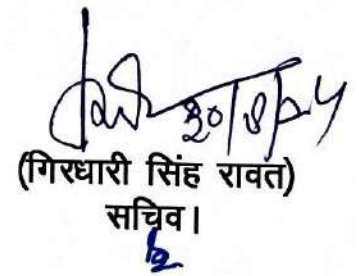 30/8/24
(गिरधारी सिंह रावत)
सचिव।